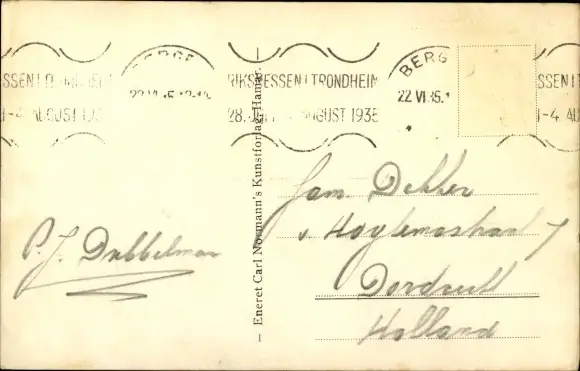 BERGE
22 VI 35.
SSEN I TRONDHEIM
RIKSMESSEN I TRONDHEIM
28. JULI AUGUST 1935
BERG
22 VI 35.1
SSEN I
1-4 AUGUST 193
1-4 AU
Eneret Carl Normann's Kunstforlag, Hamar.
P. J. Dubbelman
Fam. Dekker
Dordrecht
Holland